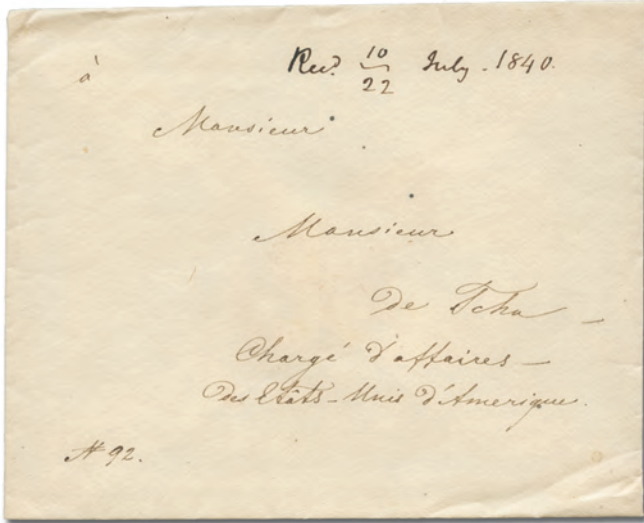 à
Rec? 10/22 July. 1840.
Monsieur
Monsieur
de Tcha—
Chargé d'affaires—
des Etâts-Unis d'Amerique.
# 92.